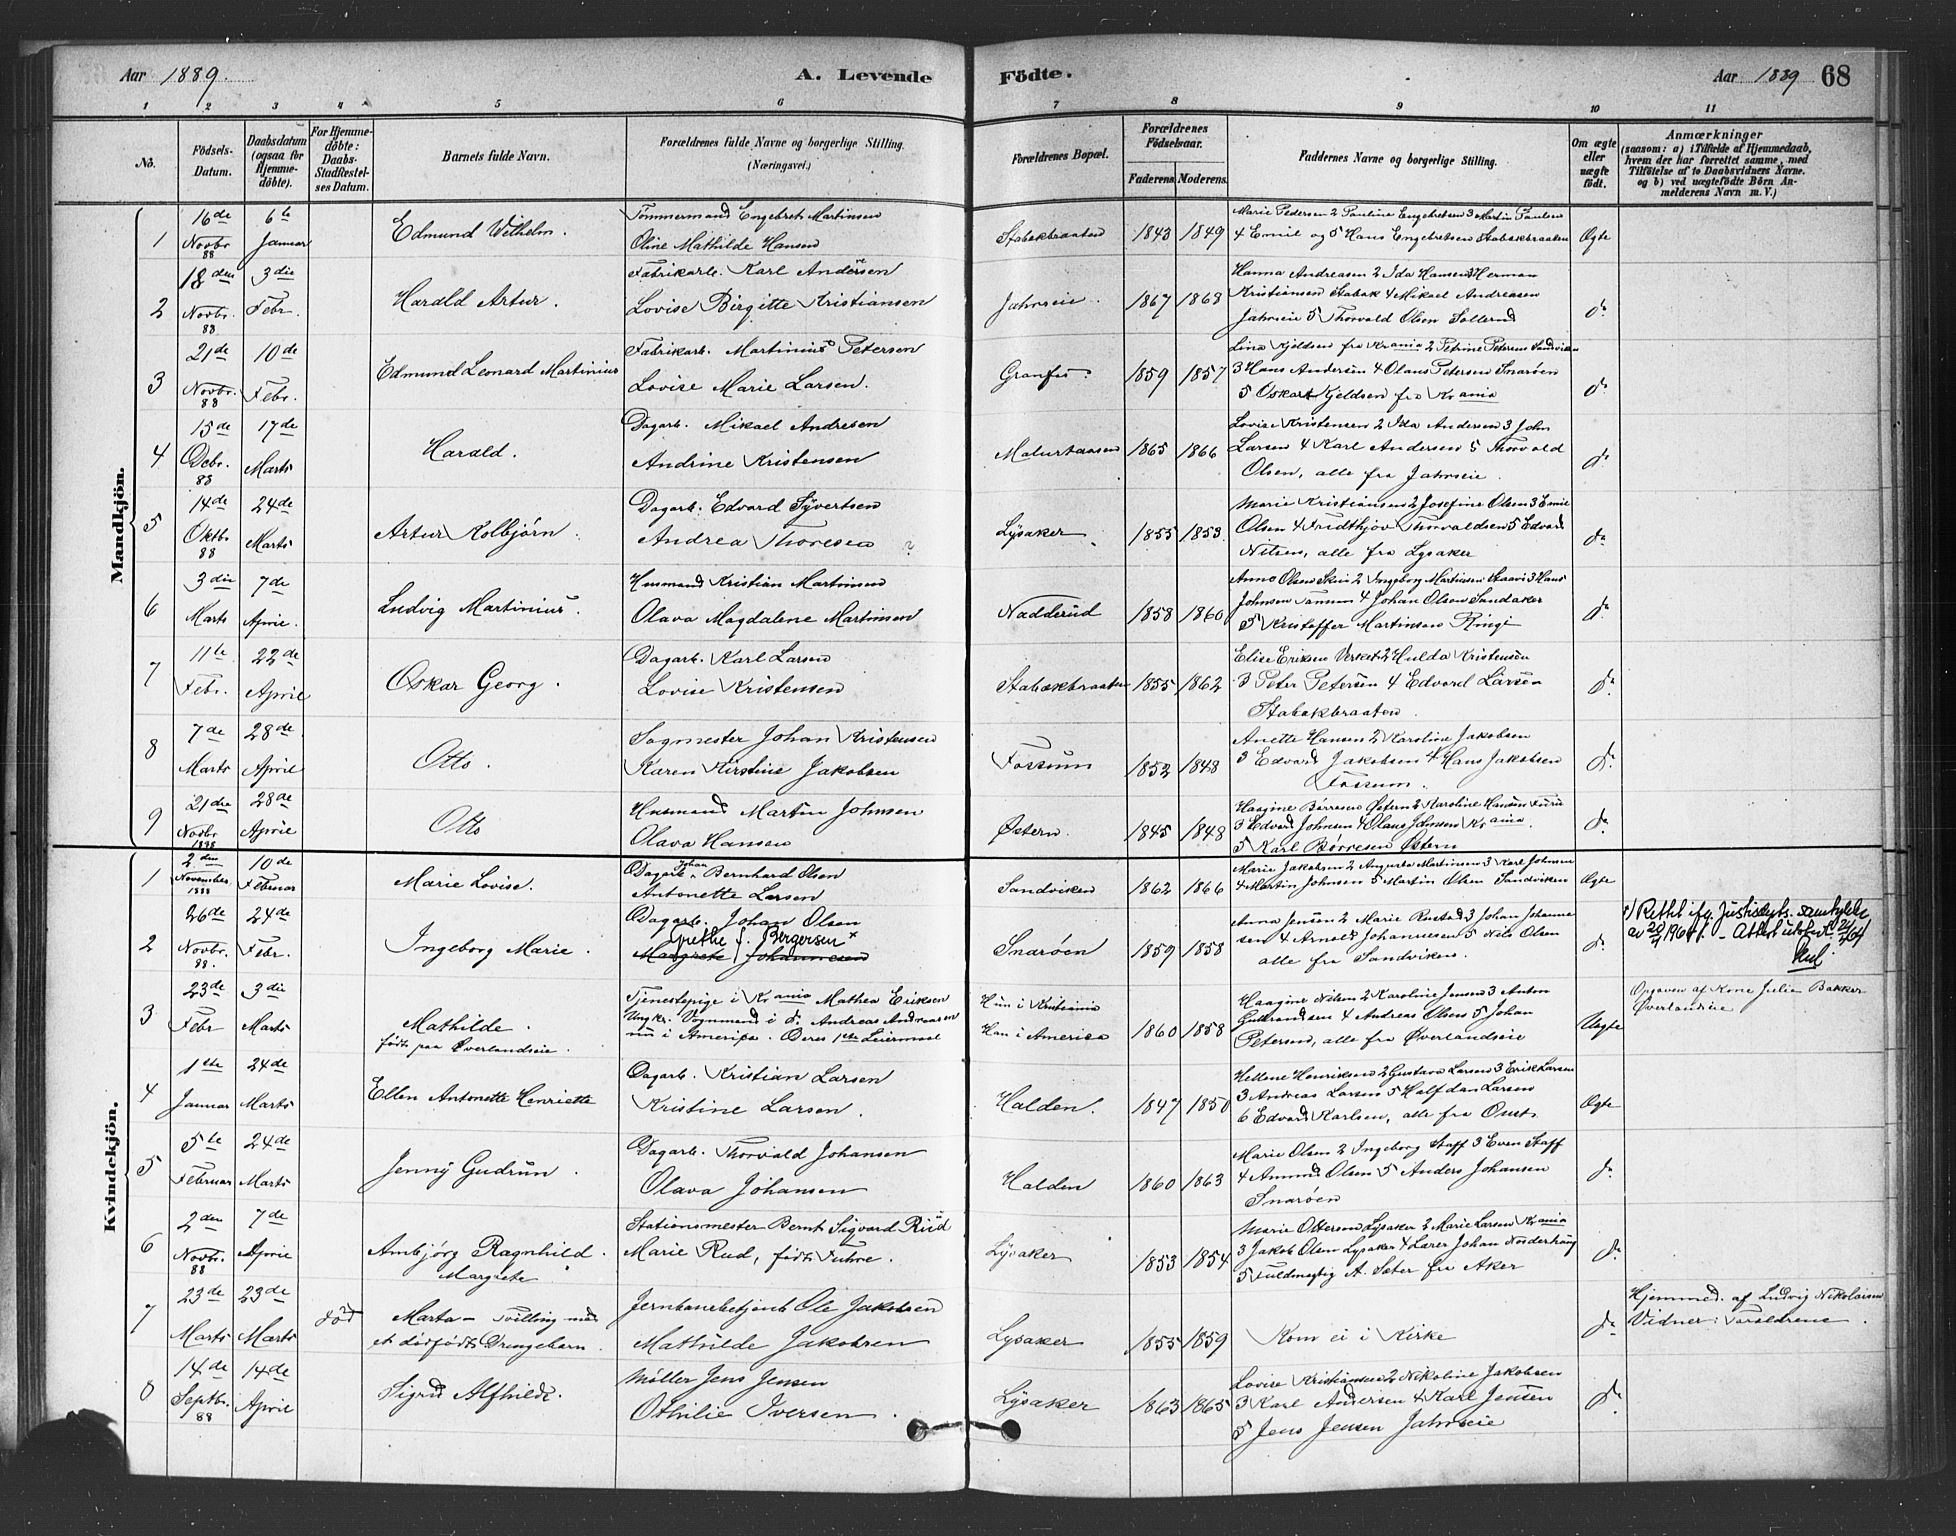 Aar 1889.
A. Levende Födte.
Aar 1889 68
1 2 3 4 5 6 7 8 9 10 11
No.
Födsels-Datum.
Daabsdatum (ogsaa for Hjemme-döbte).
For Hjemme-döbte: Daabs-Stadfæstel-ses Datum.
Barnets fulde Navn.
Forældrenes fulde Navne og borgerlige Stilling. (Næringsvei.)
Forældrenes Bopæl.
Forældrenes Födselsaar.
Faderens Moderens
Faddernes Navne og borgerlige Stilling.
Om ægte eller uægte födt.
Anmærkninger
(saasom: a) i Tilfælde af Hjemmedaab, hvem der har forrettet samme, med Tilföielse af to Daabsvidners Navne. og b) ved uægtefödte Börn An-melderens Navn m. V.)
Mandkjön.
1 16de Novbr. 88 6te Januar Edmund Wilhelm.
Tømmermand Engebret Martinsen
Oline Mathilde Hansen
Stabækbraaten 1843 1849
Marie Pedersen 2 Pauline Engebretsen 3 Martin Paulsen
4 Emil og 5 Hans Engebretsen Stabækbraaten
Ægte
2 18den Novbr. 88 3die Febr. Harald Artur.
Fabrikarb. Karl Andersen
Lovise Birgitte Kristiansen
Jahrseie 1867 1868
Hanna Andreasen 2 Ida Hansen 3 Herman
Kristiansen Stabæk 4 Mikael Andreasen
Jahrseie 5 Thorvald Olsen Sollerud
do
3 21de Novbr. 88 10de Febr. Edmund Leonard Martinius
Fabrikarb. Martinius Petersen
Lovise Marie Larsen.
Granfos 1859 1857
Lina Kjeldsen fra Krania 2 Petrine Petersen Sandviken
3 Hans Andersen 4 Olaus Petersen Snarøen
5 Oskar Kjeldsen fra Krania
do
4 15de Debr. 88 17de Marts Harald.
Dagarb. Mikael Andresen
Andrine Kristensen
1865 1866
Lovise Kristensen 2 Ida Andersen 3 John
Larsen 4 Karl Andersen 5 Thorvald
Olsen, alle fra Jahrseie.
do
5 14de Oktbr. 88 24de Marts Artur Kolbjørn.
Dagarb. Edvard Syvertsen
Andrea Thoresen ?
Lysaker 1855 1853
Marie Kristiansen 2 Josefine Olsen 3 Emil
Olsen 4 Fridthjov Thorvaldsen 5 Edvard
Nilsen, alle fra Lysaker
do
6 3die Marts 7de April. Ludvig Martinius.
Husmand Kristian Martinsen
Olava Magdalene Martinsen
Nadderud 1858 1860
Anna Olsen Skui 2 Ingeborg Martinsen Staavi 3 Hans
Johnsen Tanum 4 Johan Olsen Sandaker
5 Kristoffer Martinsen Ringi
do
7 11te Febr. 22de April Oskar Georg.
Dagarb. Karl Larsen
Lovise Kristensen
Stabækbraaten 1855 1862
Elise Eriksen Verket 2 Hulda Kristensen
3 Peter Petersen 4 Edvard Larsen
Stabækbraaten.
do
8 7de Marts 28de April Otto.
Sagmester Johan Kristensen
Karen Kirstine Jakobsen
Fossum 1852 1848
Anette Hansen 2 Karoline Jakobsen
3 Edvard Jakobsen 4 Hans Jakobsen
Fossum.
do
9 21de Novbr. 1888 28de April Otto
Husmand Martin Johnsen
Olava Hansen
Østern. 1845 1848
Haagine Børresen Østern 2 Karoline Hansen Furu
3 Edvard Johnsen 4 Olaus Johnsen Krania.
5 Karl Børresen Østern
do
Kvindekjön.
1 2den November 1888 10de Februar Marie Lovise.
Dagarb. Johan Bernhard Olsen
Antonette Larsen
Sandviken 1862 1866
Marie Jakobsen 2 Augusta Martinsen 3 Karl Johnsen
4 Martin Johnsen 5 Martin Olsen Sandviken
Ægte
2 26de Novbr. 88. 24de Febr. Ingeborg Marie.
Dagarb. Johan Olsen
Grethe f. Bergersen x
Margrete Johannesen
Snarøen 1859 1858
Anna Jensen 2 Marie Rustad 3 Johan Johanne-
sen 4 Arnold Johannesen 5 Nils Olsen
alle fra Sandviken.
do
x) Rettet ifg. Justisdepts. samtykke
av 20/4 1964. - Attest utstedt 24/4 64
3 23de Febr 3die Marts Mathilde.
født paa Øverlandseie.
Tjenestepige i Krania Mathea Eriksen
Ungkr. Vognmand i do. Andreas Andreasen
nu i Amerika. Deres 1ste Leiermaal
Hun i Kristiania
Han i America 1860 1858
Haagine Nilsen 2 Karoline Jensen 3 Anton
Gulbrandsen 4 Andreas Olsen 5 Johan
Petersen, alle fra Øverlandseie
Uægte
Opgaven af Kone Julie Bakker
Øverlandseie
4 1ste Januar 24de Marts Ellen Antonette Henriette
Dagarb. Kristian Larsen
Kristine Larsen.
Halden. 1847 1850
Hellene Henriksen 2 Gustava Larsen 3 Erik Larsen
3 Andreas Larsen 5 Halfdan Larsen
6 Edvard Karlsen, alle fra
Ægte
5 5te Februar 24de Marts Jenny Gudrun.
Dagarb. Thorvald Johansen
Olava Johansen
Halden 1860 1863
Marie Olsen 2 Ingeborg Staff 3 Even Staff
4 Amund Olsen 5 Anders Johansen
Snarøen
do
6 2den Novbr. 88 7de April Ambjørg Ragnhild.
Margrete
Stationsmester Bernt Sigvard Ruud
Marie Rud, født Fuhre.
Lysaker 1853 1854
Marie Ottersen Lysaker 2 Marie Larsen Krania
3 Jakob Olsen Lysaker 4 Lærer Johan Norderhaug
5 Fuldmægtig A. Sæter fra Aker
do
7 23de Marts 23de Marts død Marta – Tvilling med
et dødfødt Drengebarn.
Jernbanebetjent Ole Jakobsen
Mathilde Jakobsen
Lysaker 1855 1859
Kom ei i Kirke
do
Hjemmed. af Ludvig Nikolaisen
Vidner: Forældrene.
8 14de Septbr. 88 14de April Sigrid Alfhilde.
Møller Jens Jensen
Othilie Iversen.
Lysaker 1863 1865
Lovise Kristiansen 2 Nikoline Jakobsen
3 Karl Andersen 4 Karl Jensen
5 Jens Jensen Jahrseie
do